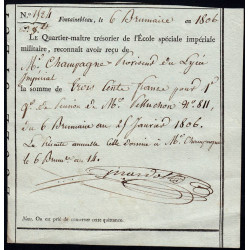 N.º 1524
Fontainebleau, le 6 Brumaire an 1806
Le Quartier-maître trésorier de l'École spéciale impériale
militaire, reconnaît avoir reçu de
Mr. Champagne Proviseur du Lycée
Impérial
la somme de Trois Cents francs pour 1er
qr. de Pension de Mr. N.º 811,
du 6 Brumaire au 25 Janvier 1806.
La présente annulle celle donnée à Mr. Champagne
le 6 Brumre an 14.
Nota. On est prié de conserver cette quittance.